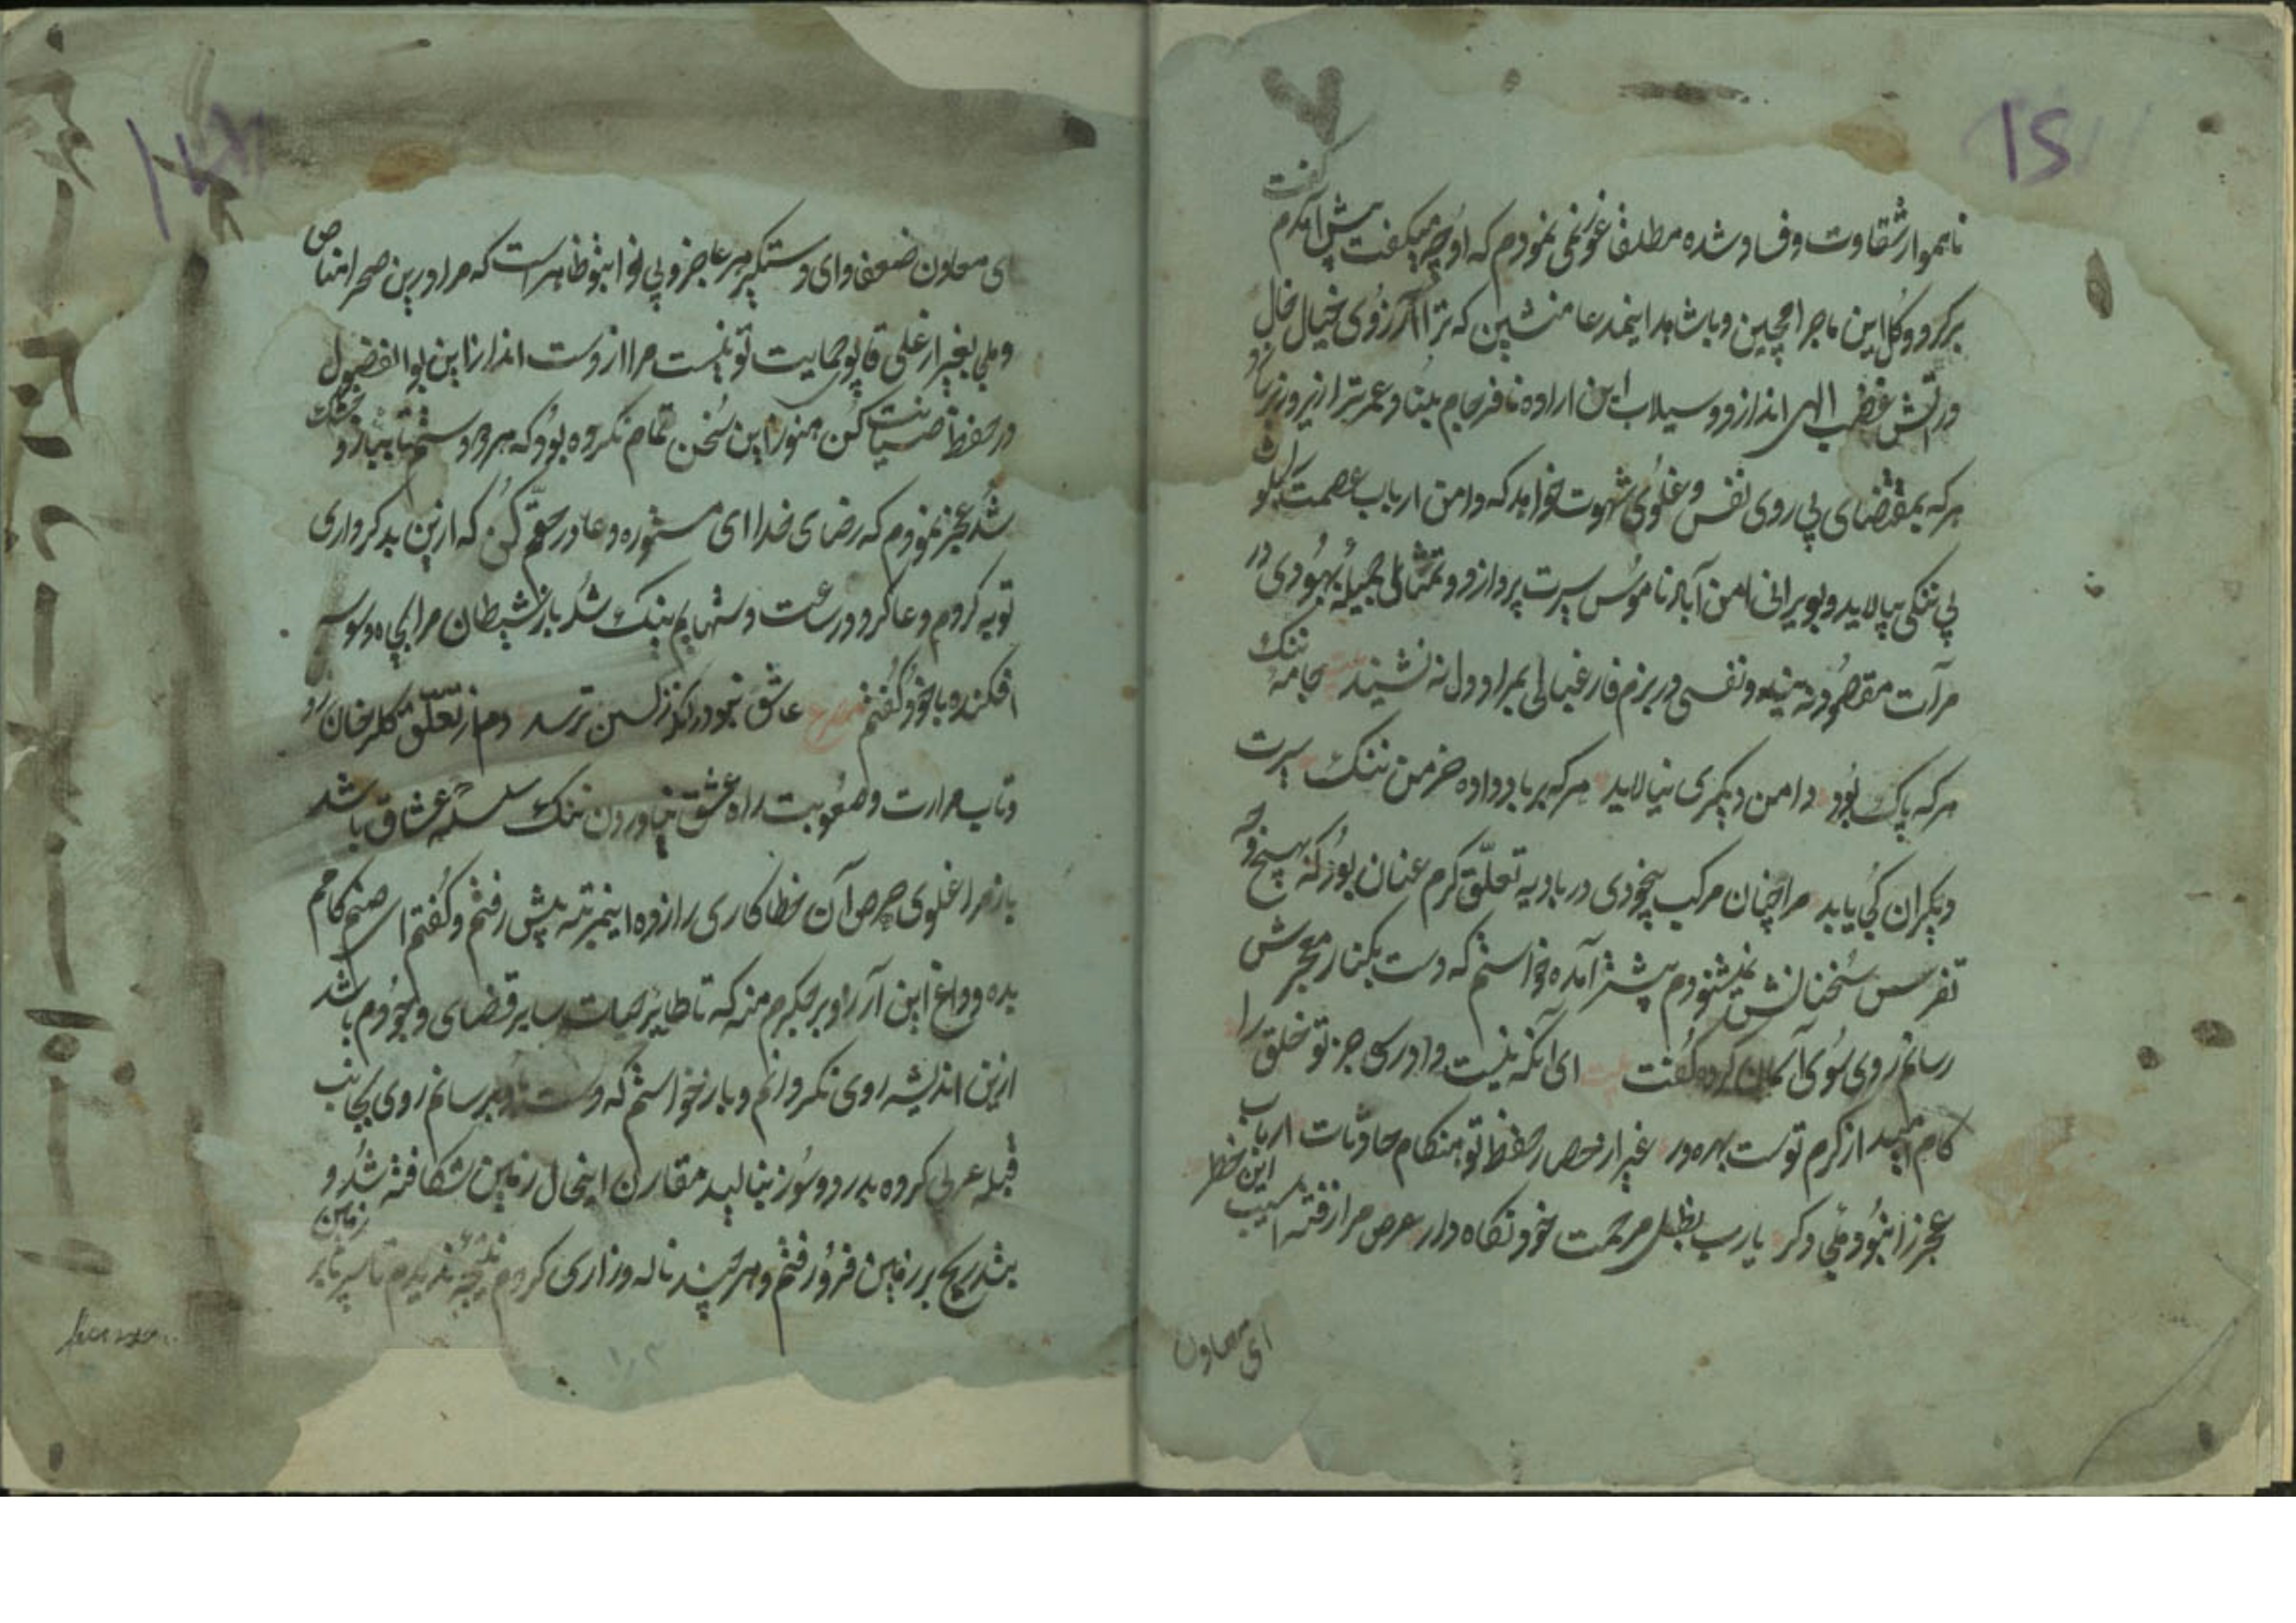 15
ناهموار شقاوت و فساد شده مطلقا غور نمی نمودم که او چه میگفت پیش آمدم گفت
برگرد و گل این ماجرا مچین و باشاهد اینمدعا منشین که ترا آرزوی خیال خال
در آتش غضب الهی اندازد و سیلاب این اراده نافرجام بنیاد عمر ترا زیر و زبر سازد
هرکه بمقتضای پی روی نفس و غلوی شهوت خواهد که دامن ارباب عصمت بلوث
بی ننکی بیالاید و بویرانی مامن آباد ناموس سیرت پردازد و تمثال جمیله بهبودی در
مرآت مقصود نه بیند و نفسی در بزم فارغبالی بمراد دل نه نشیند بیت جامه ننک
هرکه پاک بود دامن دیگری نیالاید هرکه برباد داده خرمن ننک سیرت
دیگران کی پاید مرا چنان مرکب بیخودی در بادیه تعلق گرم عنان بود که بهیچ وجه
تفرس سخنانش نمیشنودم پیشتر آمده خواستم که دست بکنار معجرش
رسانم روی سوی آسمان کرده گفت بیت ای آنکه نیست دادرسی جز تو خلق را
کام امید از کرم توست بهره ور غیر از حصار حفظ تو هنکام حادثات ارباب
عجز را نبود ملجأ دگر یارب بظل مرحمت خود نگاه دار عرض مرا ز فتنه آسیب این خطر
ای معاون
ای معاون ضعفا و ای دستگیر هر عاجز و بی نوا بتو ظاهر است که مرا درین صحرا مناص
و ملجأ بغیر از علی قاپو حمایت تو نیست مرا از دست انداز این بوالفضول
در حفظ صیانت کن هنوز این سخن تمام نکرده بود که هر دو دستم تا ببازو خشک
شد عجز نمودم که رضای خدا ای مستوره دعا در حقم کن که ازین بد کرداری
توبه کردم دعا کرد در ساعت دستهایم نیک شد باز شیطان مرا بچاه وسوسه
افکنده با خود گفتم مصرع عاشق نبود در گذر کس ترسد دم از تعلق گلرخان زد
و تاب مرارت و صعوبت راه عشق نیاوردن ننک سلسله عشاق باشد
باز مرا غلوی حرص آن خطاکاری راز ده اینمرتبه پیش رفتم و گفتم ای صنم کامم
بده و داغ این آرزو بر جگرم منه که تا طایر حیات سایر فضای وجودم باشد
ازین اندیشه روی نگردانم و باز خواستم که دست باو برسانم روی بجانب
قبله عربی کرده بدرد و سوز بنالید مقارن اینحال زمین شکافته شد و
بتدریج بر زمین فرو رفتم و هر چند ناله و زاری کردم نتیجه ندیدم تا سینه بر زمین